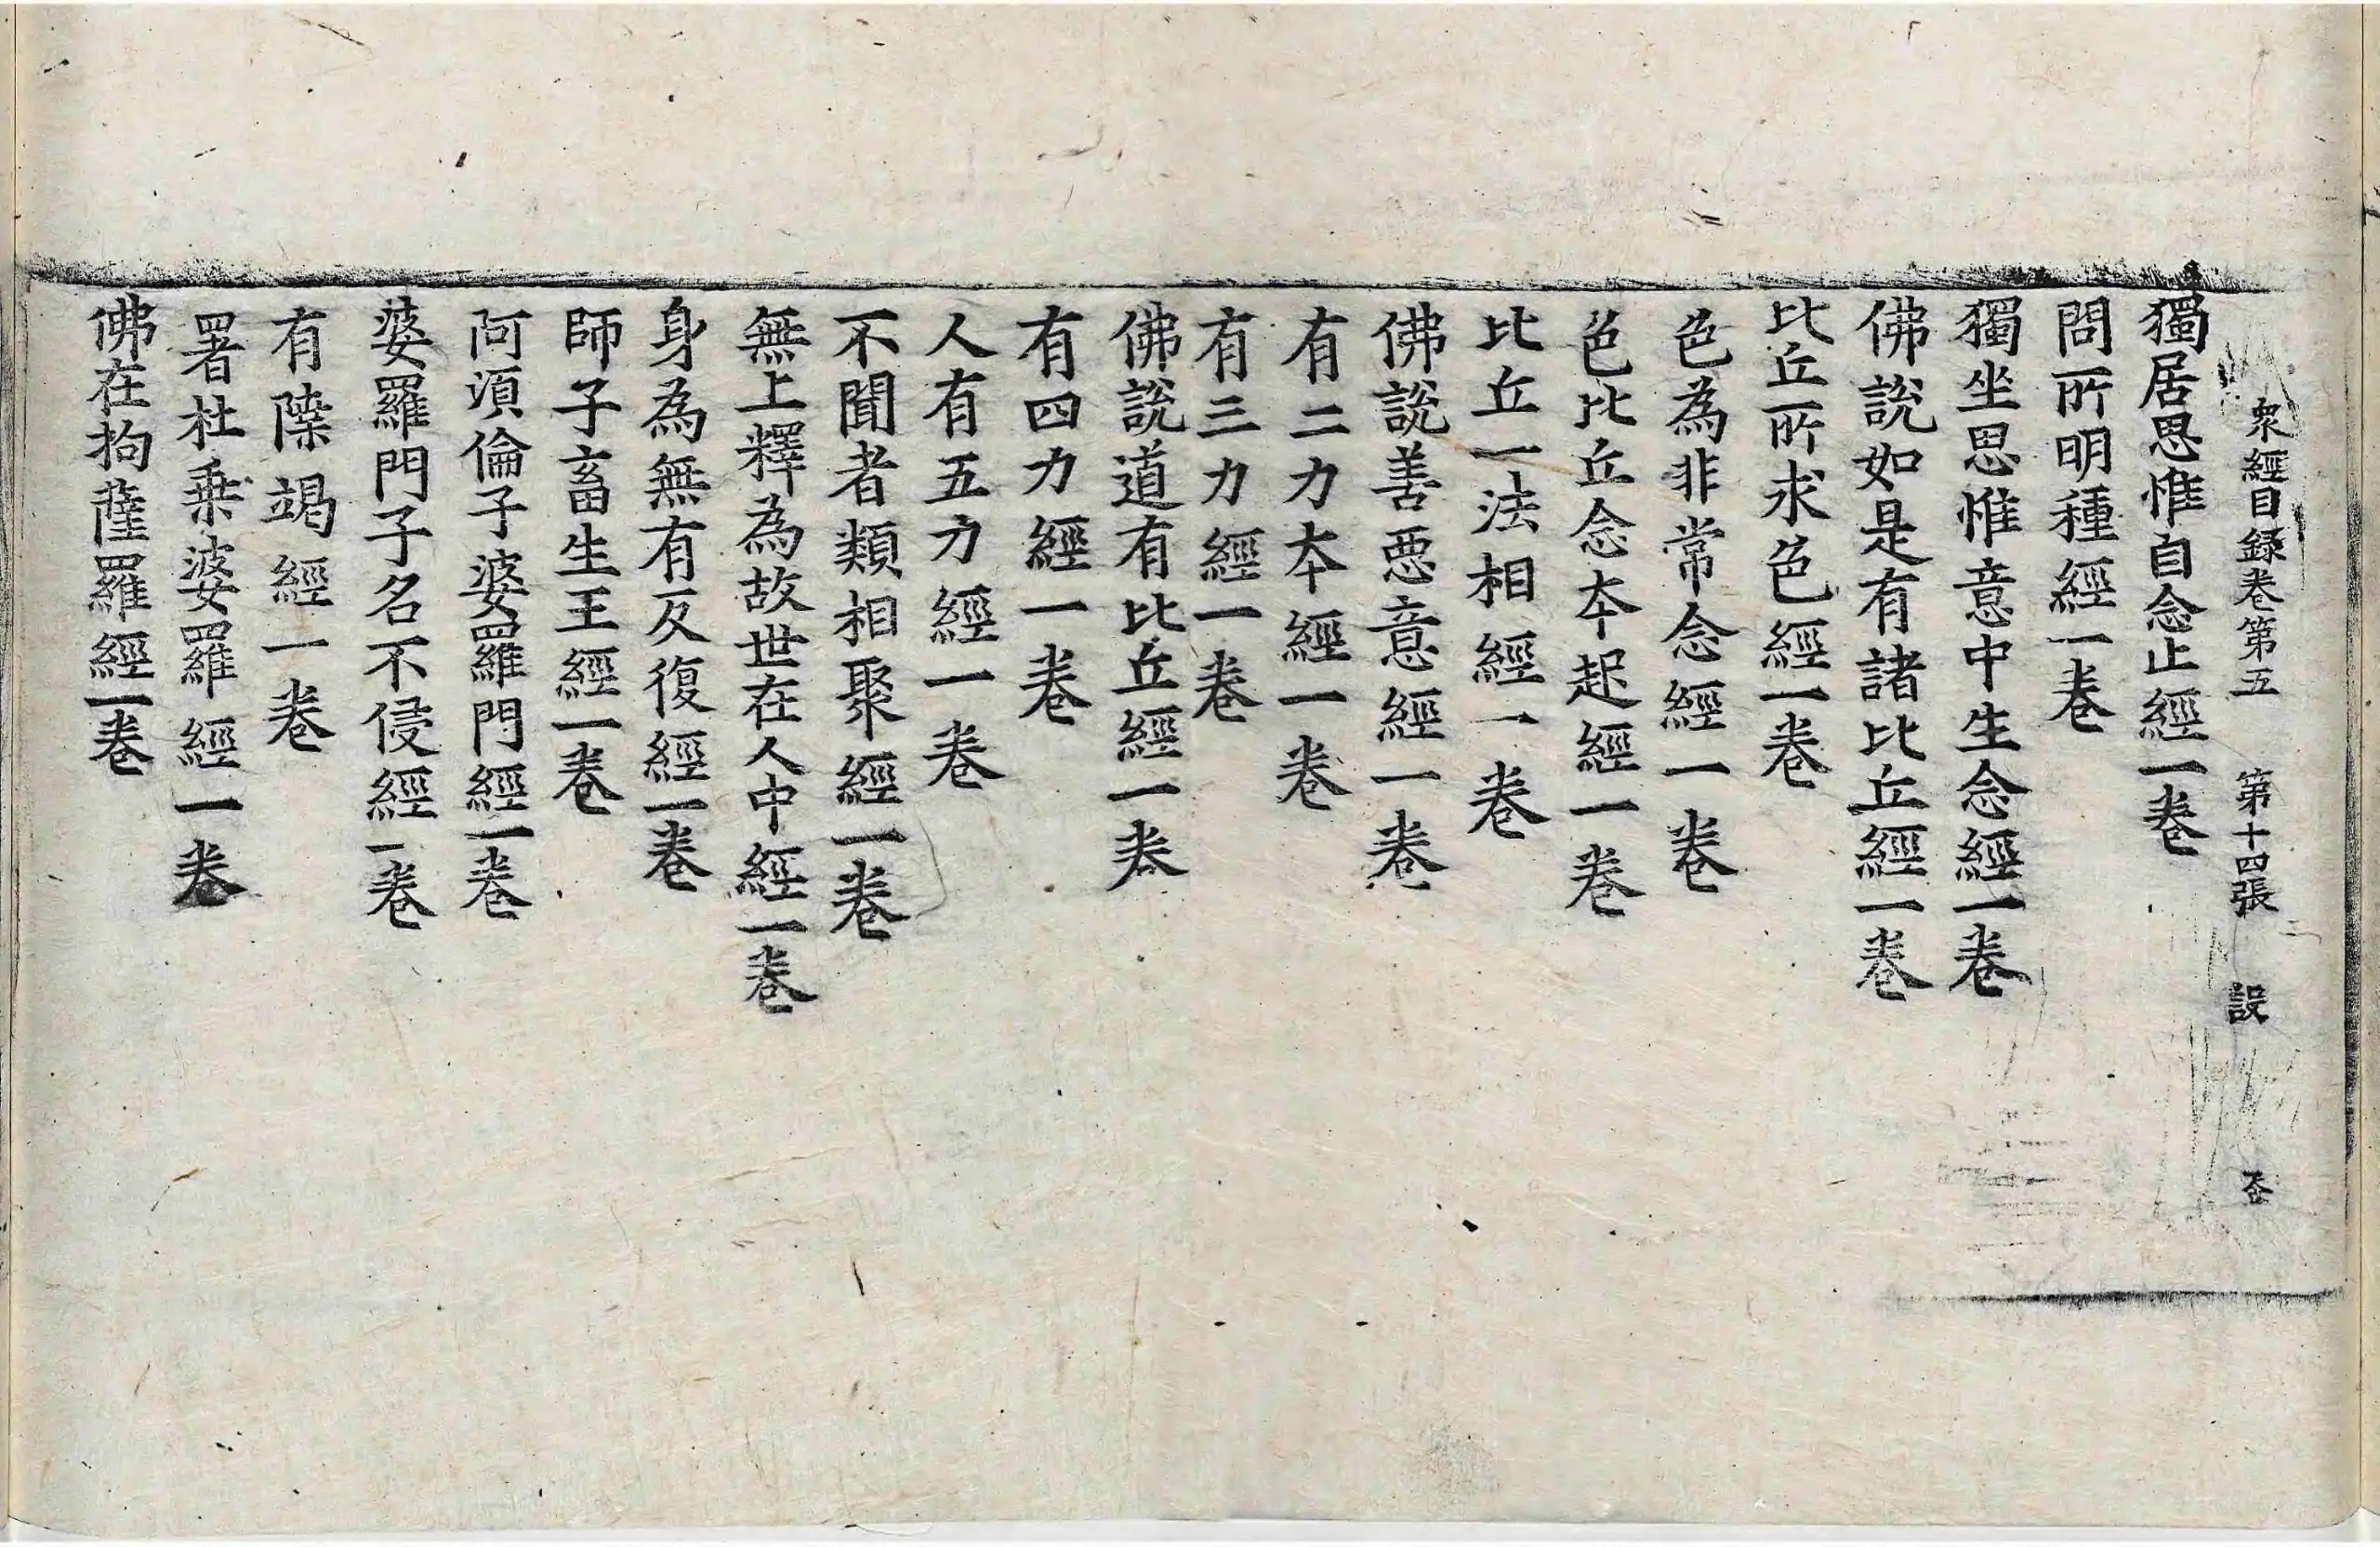 衆經目録卷第五 第十四張 設
獨居思惟自念止經一卷
問所明種經一卷
獨坐思惟意中生念經一卷
佛說如是有諸比丘經一卷
比丘所求色經一卷
色為非常念經一卷
色比丘念本起經一卷
比丘一法相經一卷
佛說善惡意經一卷
有二力本經一卷
有三力經一卷
佛說道有比丘經一卷
有四力經一卷
人有五力經一卷
不聞者類相聚經一卷
無上釋為故世在人中經一卷
身為無有反復經一卷
師子畜生王經一卷
阿湏倫子婆羅門經一卷
婆羅門子名不侵經一卷
有𨻶竭經一卷
署杜乗婆羅經一卷
佛在拘薩羅經一卷